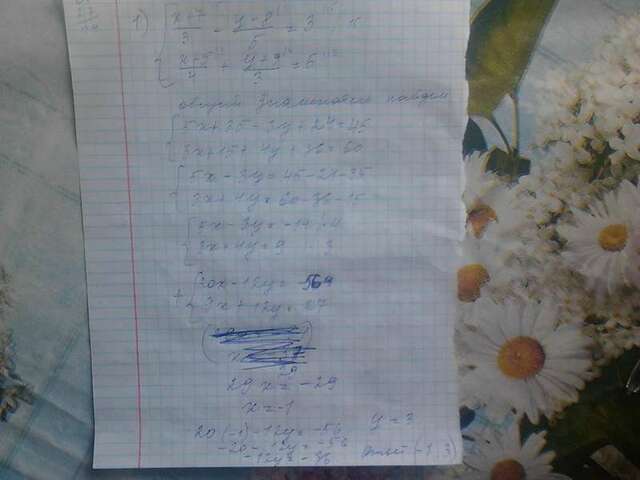 1) { (x+7)/3 - (y-8)/5 = 3
(x+5)/4 + (y+9)/3 = 5
общий знаменатель найдем
5x+35-3y+24=45
3x+15+4y+36=60
5x-3y=45-24-35
3x+4y=60-36-15
5x-3y=-14 4
3x+4y=9 3
20x-12y=-56
+ 9x+12y=27
29x=-29
x=-1
20(-1)-12y=-56 y=3
-20-12y=-56
-12y=-36 ответ(-1;3)